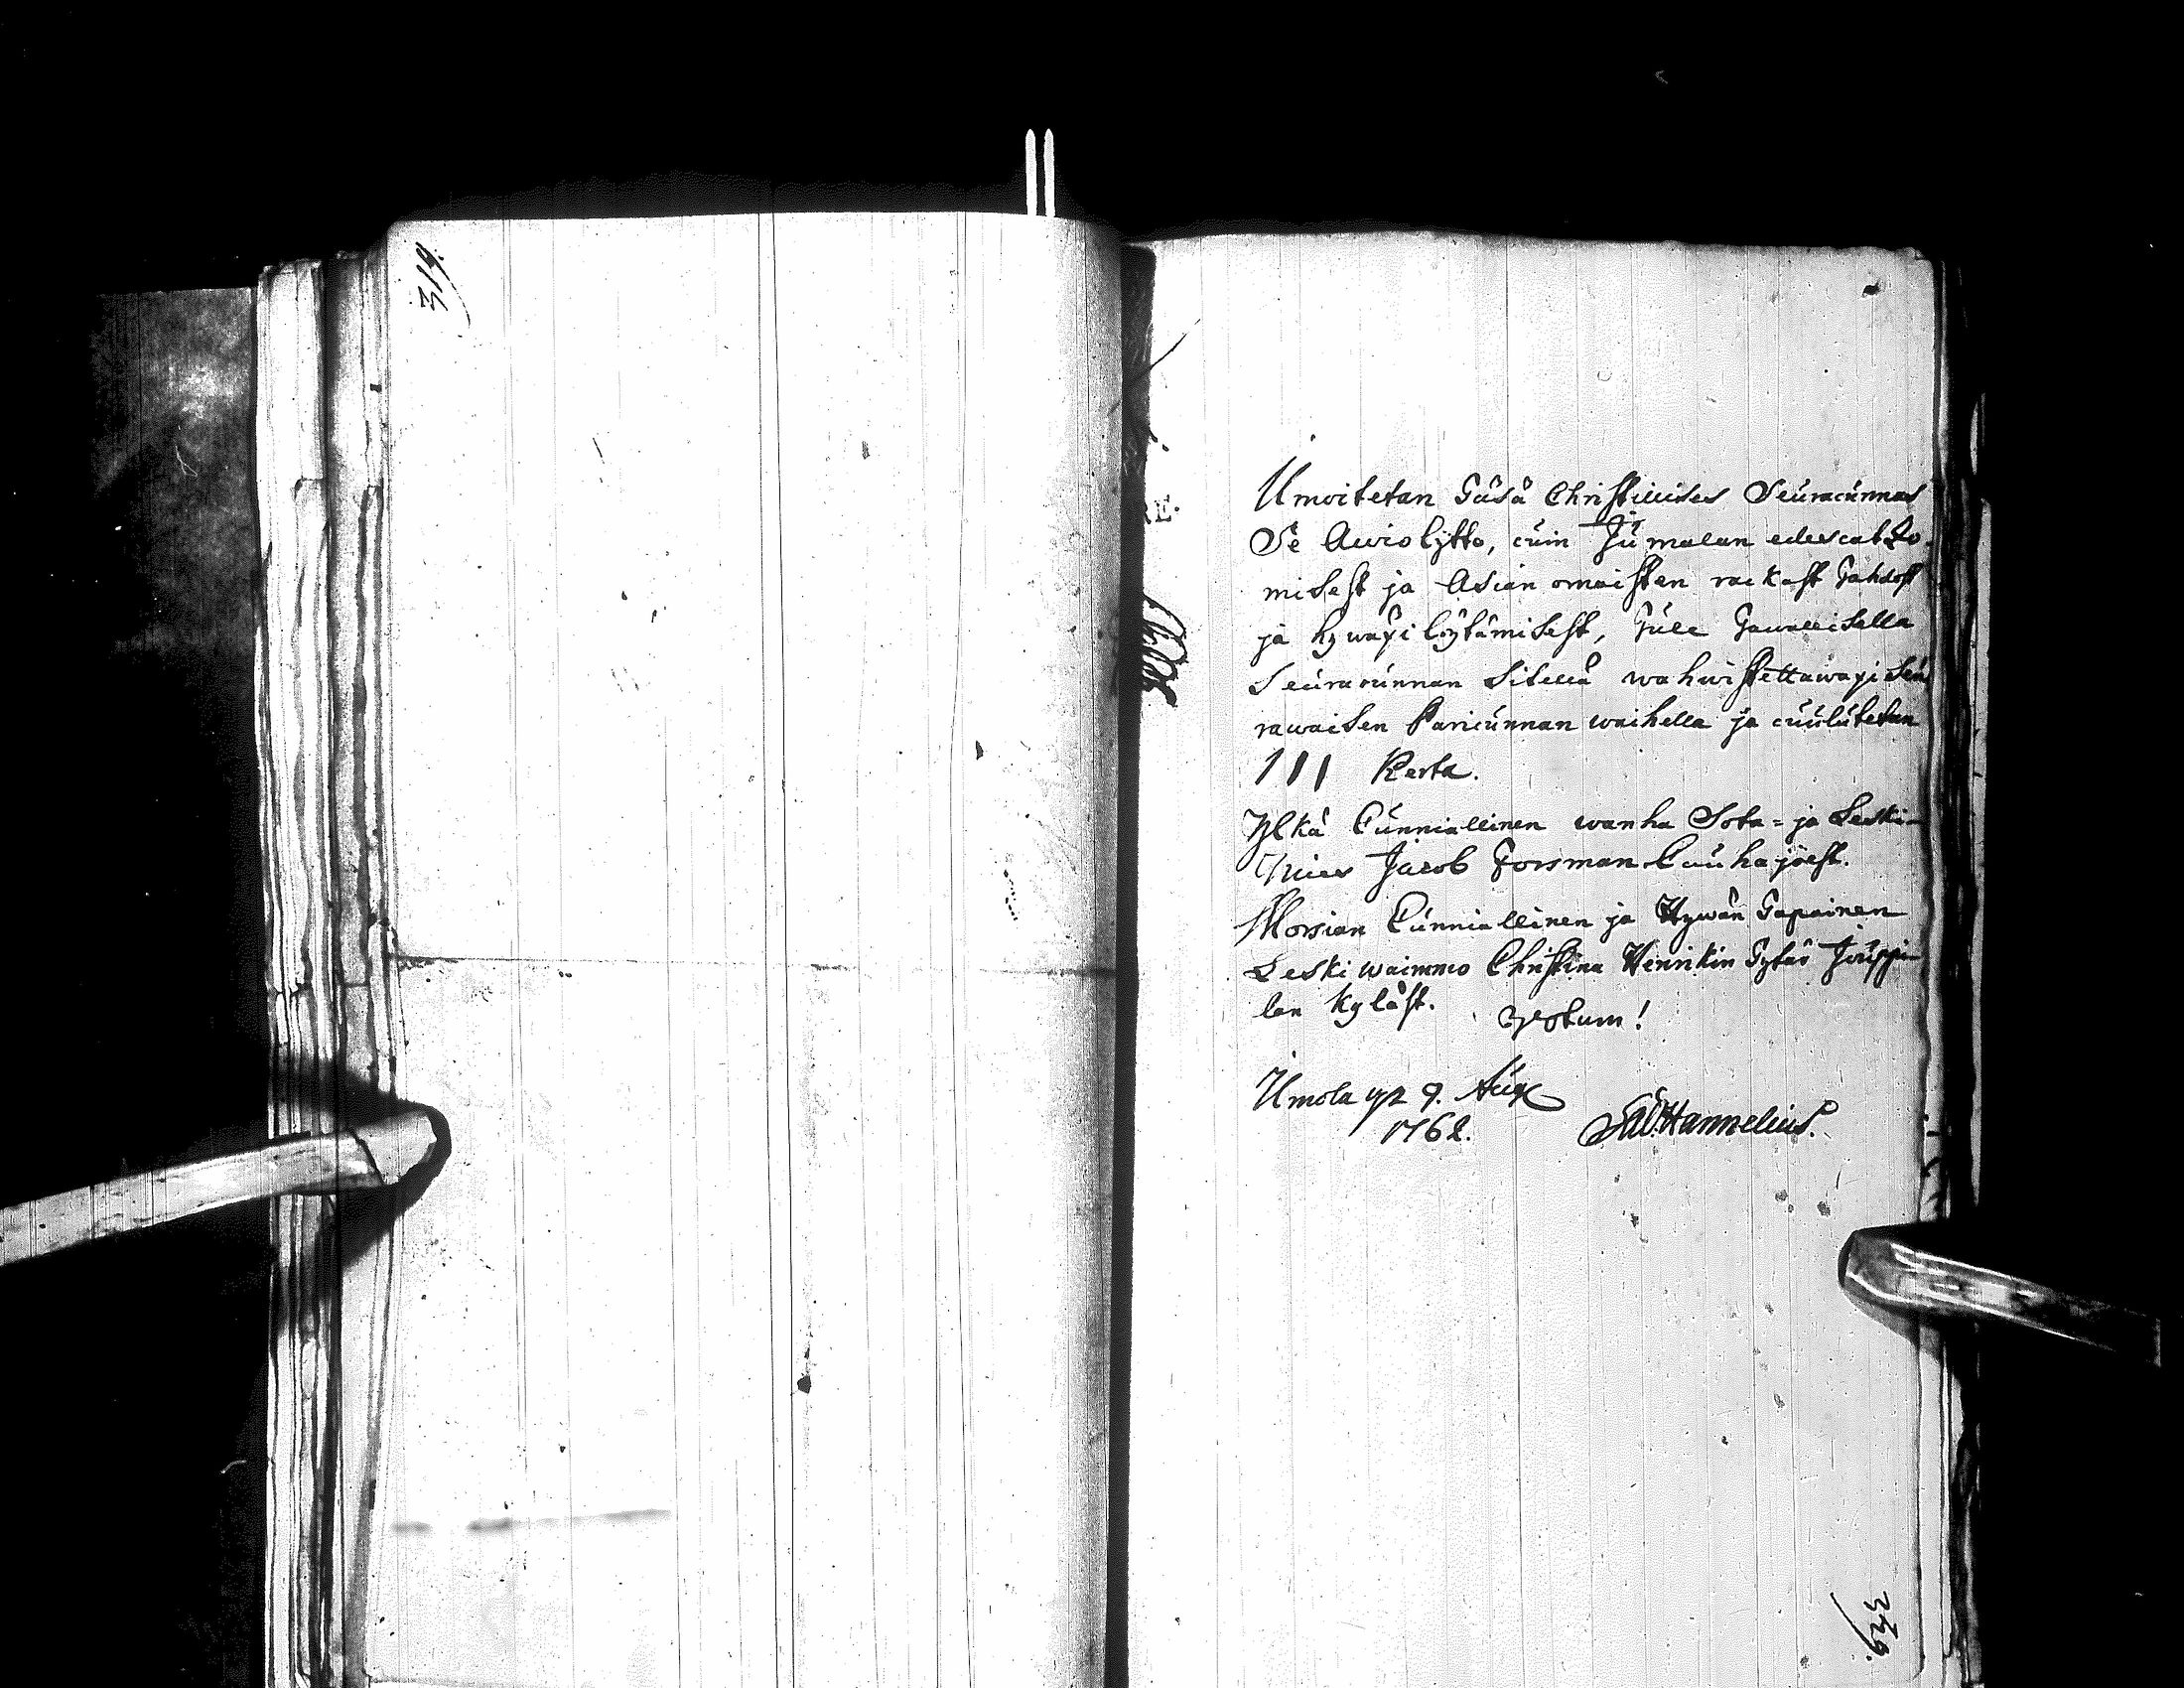 319.
Ilmoitetan täsä Christilises Seuracunnas
Se Awiokÿtto, cuin Jumalan edescatzo-
misest ja Asian omaisten rackast tahdost
ja hywäxi löytämisest, tule tawallisella
Seuracunnan Sitellä wahwistettawaxi seu
rawaisen Paricunnan waihella ja cuulutetan
III Kerta.
Ylkä Cunniallinen wanha Sota= ja Leski-
Mies Jacob Forsman Cauhajoest.
Morsian Cunniallinen ja Hywän tapainen
Leski waimmo Christina Henrikin tytär Jouppi-
lan Kyläst.
Votum!
Ilmola yz 9. Aug
1762.
Hannelius.